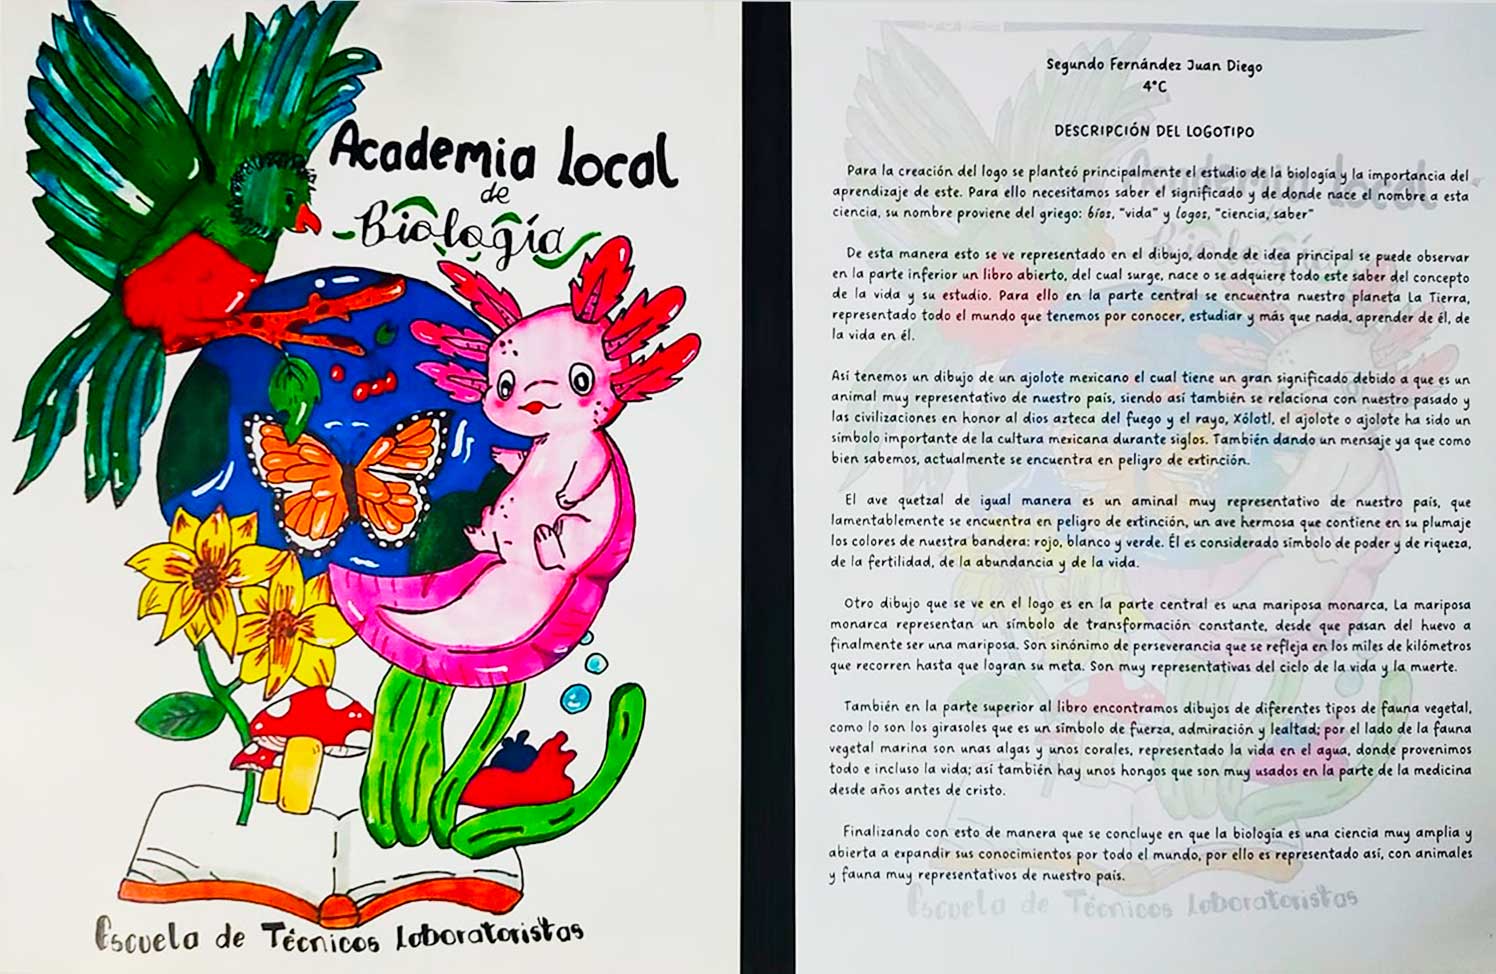 Academia Local
de
Biología
Escuela de Técnicos Laboratoristas
Segundo Fernández Juan Diego
4°C
DESCRIPCIÓN DEL LOGOTIPO
Para la creación del logo se planteó principalmente el estudio de la biología y la importancia del
aprendizaje de este. Para ello necesitamos saber el significado y de donde nace el nombre a esta
ciencia, su nombre proviene del griego: bíos, "vida" y logos, "ciencia, saber"
De esta manera esto se ve representado en el dibujo, donde de idea principal se puede observar
en la parte inferior un libro abierto, del cual surge, nace o se adquiere todo este saber del concepto
de la vida y su estudio. Para ello en la parte central se encuentra nuestro planeta La Tierra,
representado todo el mundo que tenemos por conocer, estudiar y más que nada, aprender de él, de
la vida en él.
Así tenemos un dibujo de un ajolote mexicano el cual tiene un gran significado debido a que es un
animal muy representativo de nuestro país, siendo así también se relaciona con nuestro pasado y
las civilizaciones en honor al dios azteca del fuego y el rayo, Xólotl, el ajolote o ajolote ha sido un
símbolo importante de la cultura mexicana durante siglos. También dando un mensaje ya que como
bien sabemos, actualmente se encuentra en peligro de extinción.
El ave quetzal de igual manera es un aminal muy representativo de nuestro país, que
lamentablemente se encuentra en peligro de extinción, un ave hermosa que contiene en su plumaje
los colores de nuestra bandera: rojo, blanco y verde. Él es considerado símbolo de poder y de riqueza,
de la fertilidad, de la abundancia y de la vida.
Otro dibujo que se ve en el logo es en la parte central es una mariposa monarca, La mariposa
monarca representan un símbolo de transformación constante, desde que pasan del huevo a
finalmente ser una mariposa. Son sinónimo de perseverancia que se refleja en los miles de kilómetros
que recorren hasta que logran su meta. Son muy representativas del ciclo de la vida y la muerte.
También en la parte superior al libro encontramos dibujos de diferentes tipos de fauna vegetal,
como lo son los girasoles que es un símbolo de fuerza, admiración y lealtad; por el lado de la fauna
vegetal marina son unas algas y unos corales, representado la vida en el agua, donde provenimos
todo e incluso la vida; así también hay unos hongos que son muy usados en la parte de la medicina
desde años antes de cristo.
Finalizando con esto de manera que se concluye en que la biología es una ciencia muy amplia y
abierta a expandir sus conocimientos por todo el mundo, por ello es representado así, con animales
y fauna muy representativos de nuestro país.
Escuela de Técnicos Laboratoristas